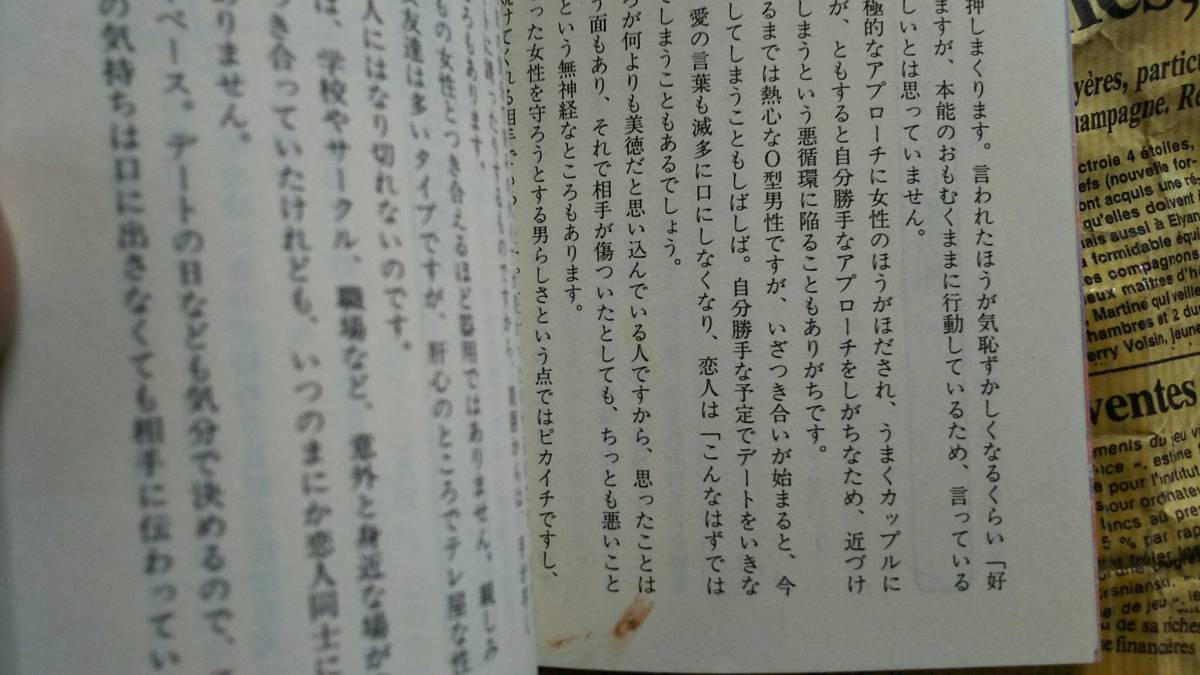 押しまくります。言われたほうが気恥ずかしくなるくらい「好
ますが、本能のおもむくままに行動しているため、言っている
しいとは思っていません。
極的なアプローチに女性のほうがほだされ、うまくカップルに
が、ともすると自分勝手なアプローチをしがちなため、近づけ
しまうという悪循環に陥ることもありがちです。
るまでは熱心なO型男性ですが、いざつき合いが始まると、今
してしまうこともしばしば。自分勝手な予定でデートをいきな
愛の言葉も滅多に口にしなくなり、恋人は「こんなはずでは
でしまうこともあるでしょう。
が何よりも美徳だと思い込んでいる人ですから、思ったことは
う面もあり、それで相手が傷ついたとしても、ちっとも悪いこと
という無神経なところもあります。
った女性を守ろうとする男らしさという点ではピカイチですし、
ろもあります。
もの女性とつき合えるほど器用ではありません。親しみ
友達は多いタイプですが、肝心のところでテレ屋な性
人にはなり切れないのです。
は、学校やサークル、職場など、意外と身近な場が
き合っていたけれども、いつのまにか恋人同士に
ありません。
ペース。デートの日なども気分で決めるので、
の気持ちは口に出さなくても相手に伝わってい
yères, particu
hampagne. Re
ctroie 4 étoiles,
efs (nouvelle for-
ont acquis une ré-
qu'elles doivent
ais aussi à Elyan
formidable équi
es compagnons
eux maîtres d'h
Martine qui veille
hambres et 2 du
erry Voisin, jeune
ventes
ments du jeu vi
estine
pour l'institut
our ordinateu
lancs au pres
5 % par rap
rsnianski.
ei de jeu
de sa riches
e financières